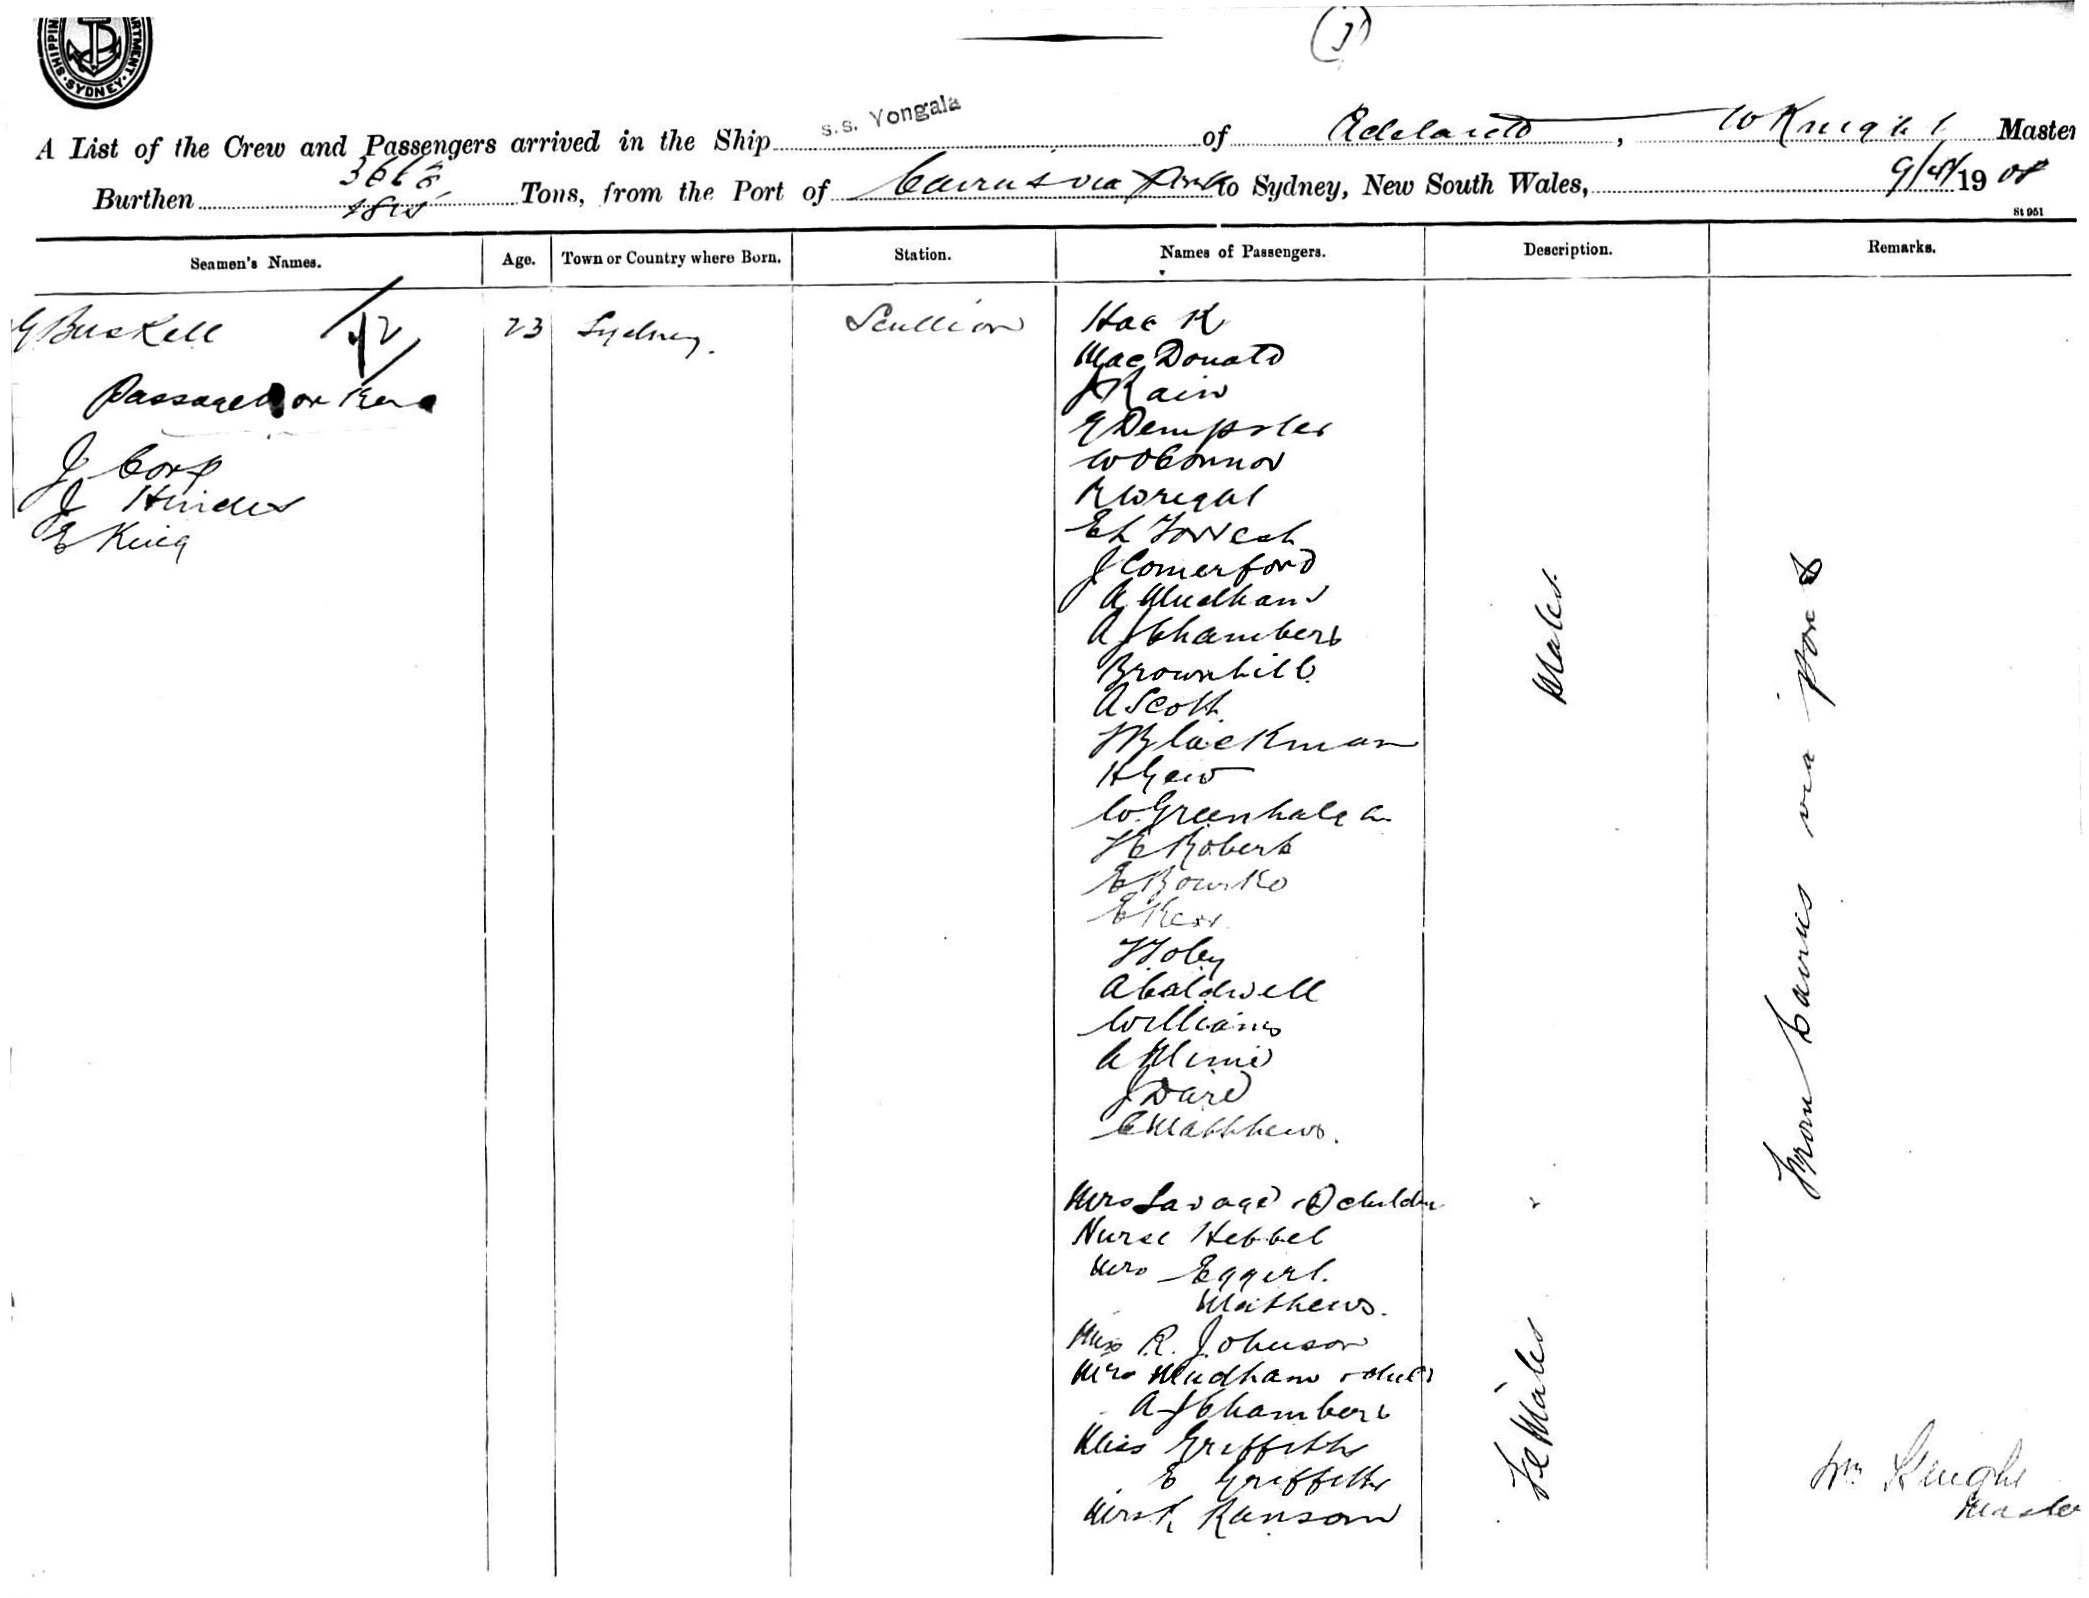 SHIPPIN ARTMENT. SYDNEY
(J)
A List of the Crew and Passengers arrived in the Ship s.s. Yongala of Adelaide, W Knight Master
Burthen 3668 Tons, from the Port of Cairns via Ports to Sydney, New South Wales, 9/4/1908
1825
St 951
Seamen's Names. Age. Town or Country where Born. Station. Names of Passengers. Description. Remarks.
G Buskell 72 23 Sydney. Scullion
Passage Workers
J Corp
J Hindes
E King
Hack
MacDonald
J Rain
E Dempster
W O Connor
R Wregal
E L Forrest
J Comerford
A Mudhams
A J Chambers
Brownhill
A Scott
F Blackman
H Gew
W. Greenhalgh
H E Roberts
E Bourke
E Kerr
F Foley
A Caldwell
Williams
A Milne
J Daird
C Matthews.
Males.
Mrs Savage & 2 childn
Nurse Hebbel
Mrs Eggert.
Mathews.
Miss R. Johnson
Mrs Mudham & child
A J Chambers
Miss Griffiths
E Griffiths
Mrs K Ransom
FeMales
From Cairns via ports
Wm Knight
Master